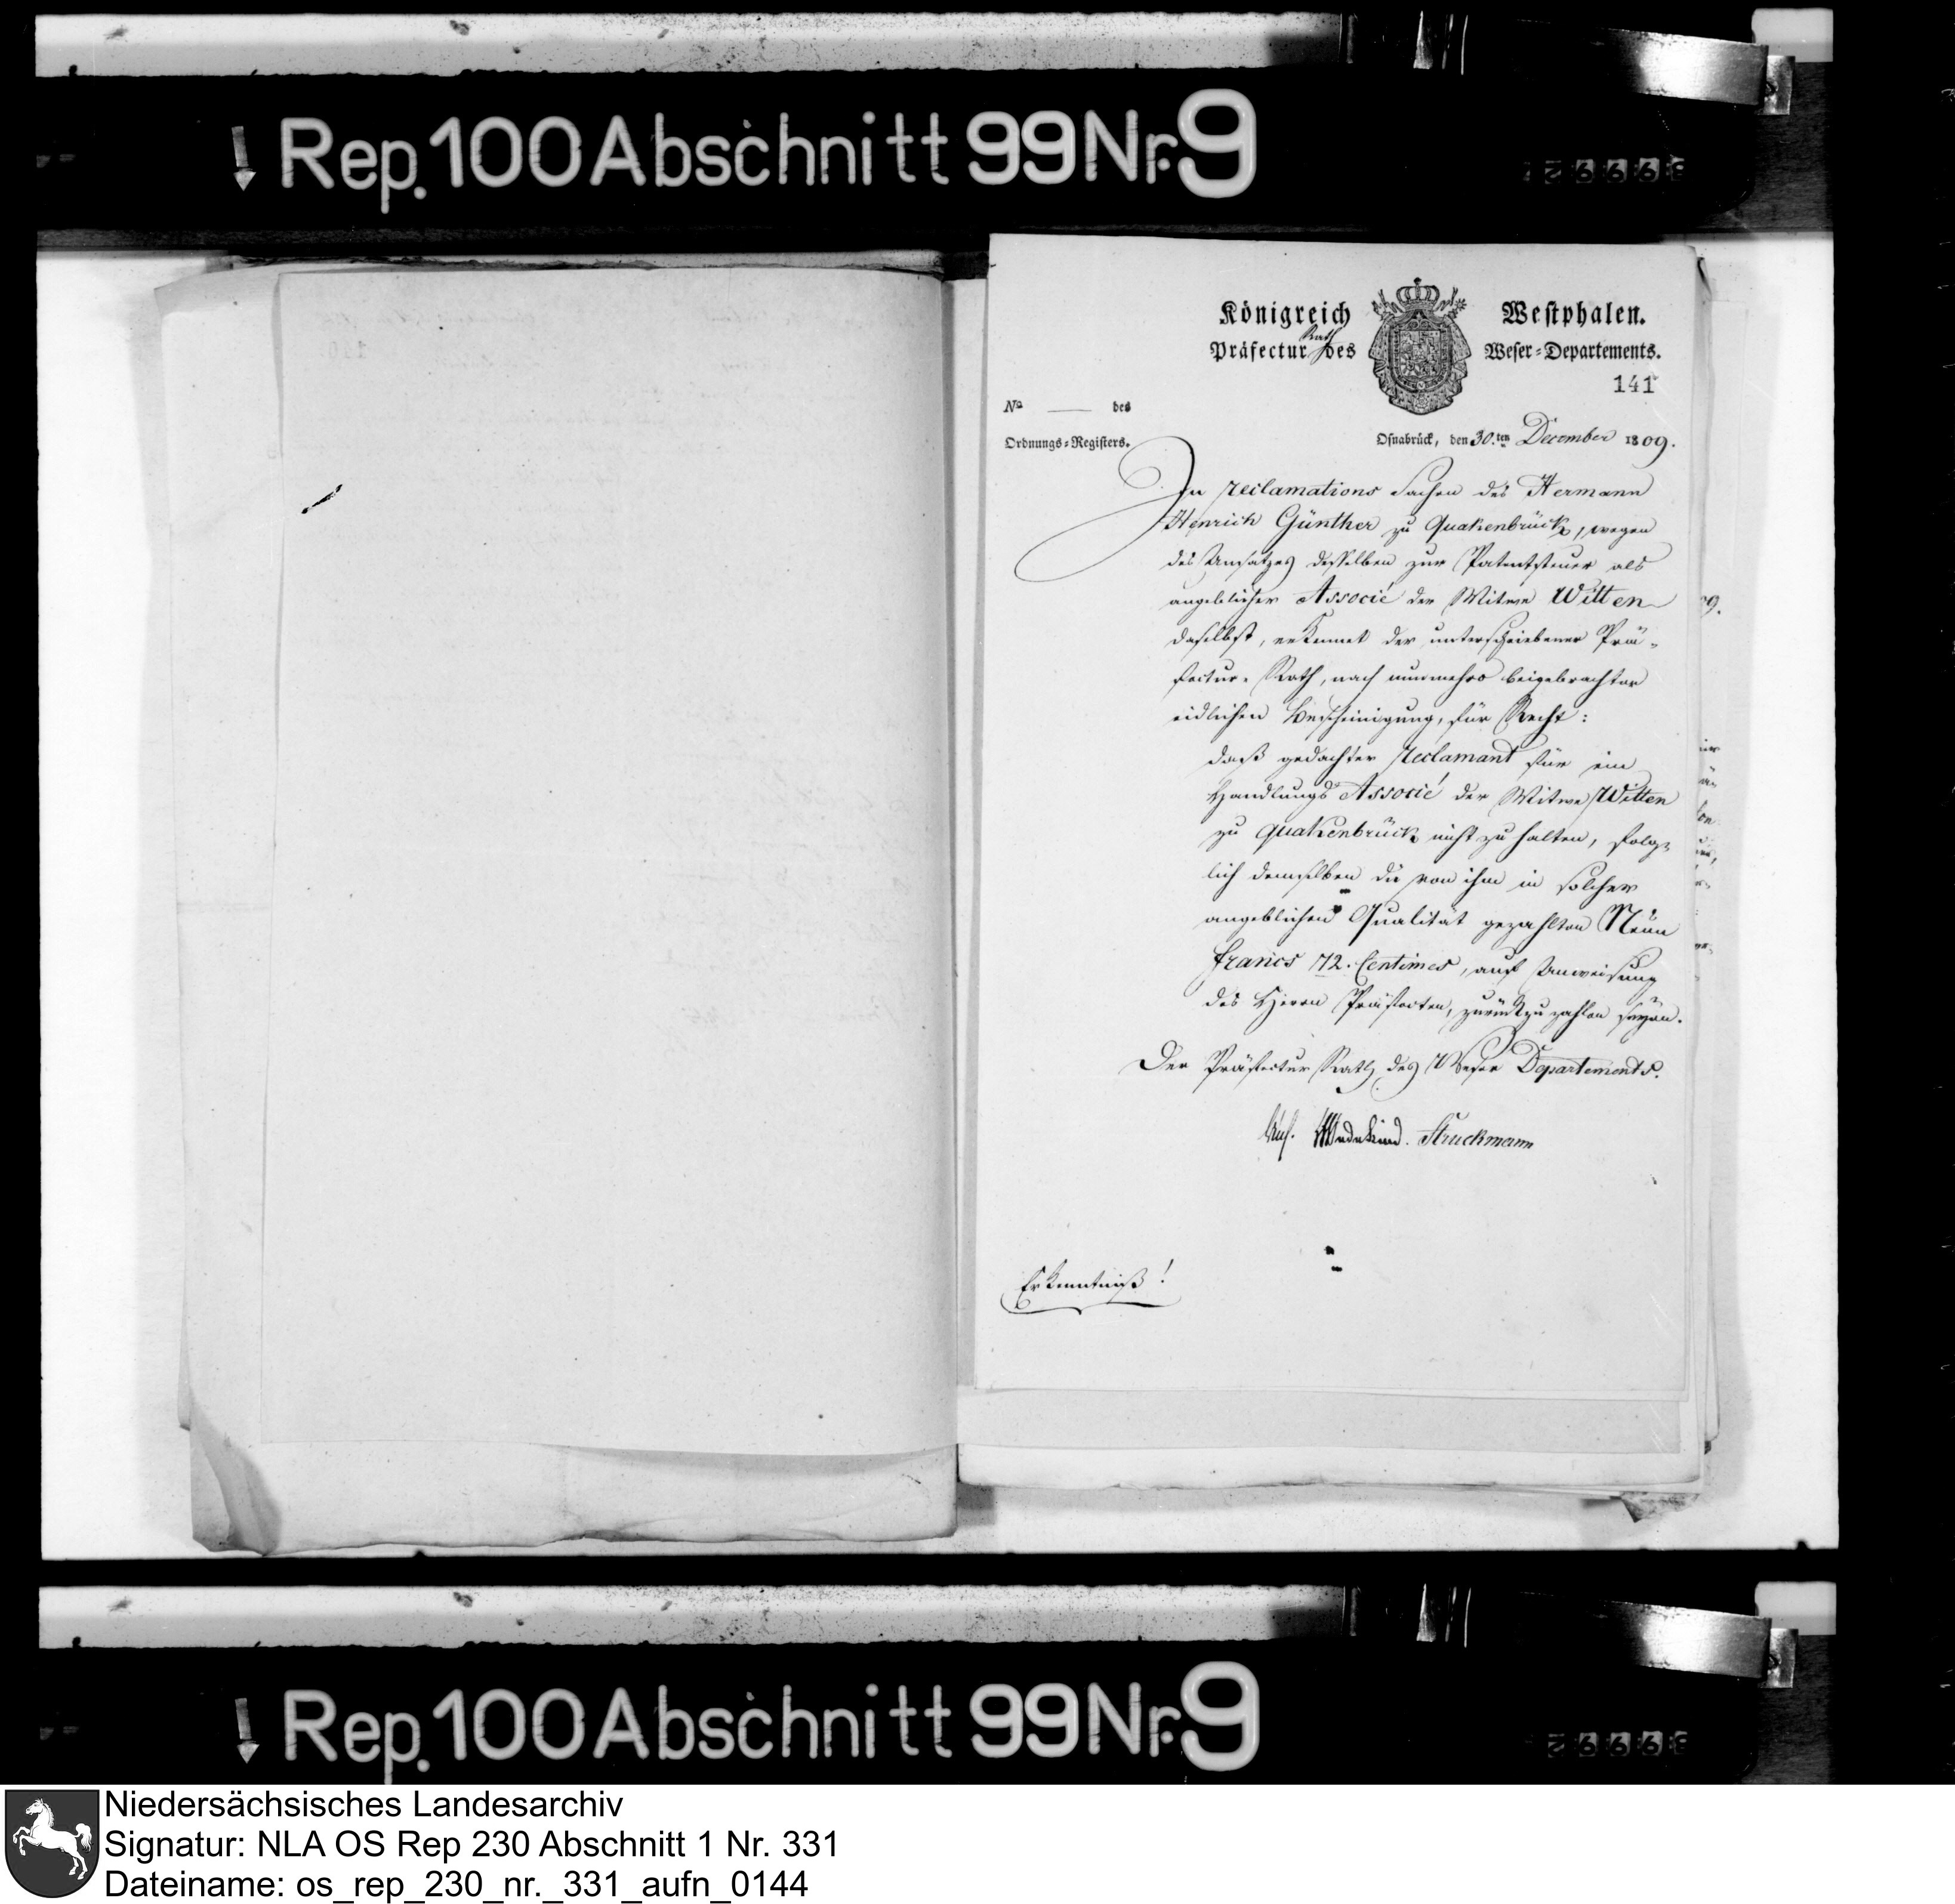 Rep. 100 Abschnitt 99 Nr. 9
Königreich Westphalen.
Präfectur Rath des Weser-Departements.
141
No —— des
Ordnungs-Registers.
Osnabrück, den 30.ten December 1809.
In Reclamations Sachen des Hermann
Henrich Günther zu Quakenbrück, wegen
des Ansatzes desselben zur Patentsteuer als
angeblicher Associé der Witwe Witten
daselbst, erkennet der unterschriebener Prä-
fectur-Rath, nach nunmehro beigebrachter
eidlichen Bescheinigung, für Recht:
daß gedachter Reclamant für ein
Handlungs Associé der Witwe Witten
zu Quakenbrück nicht zu halten, folg-
lich demselben die von ihm in solcher
angeblichen Qualität gezahlten Neun
Francs 72. Centimes, auf Anweisung
des Herrn Präfecten, zurückzuzahlen seyen.
Der Präfectur Rath des Weser Departements.
Wedekind. Struckmann
Erkenntniß!
Rep. 100 Abschnitt 99 Nr. 9
Niedersächsisches Landesarchiv
Signatur: NLA OS Rep 230 Abschnitt 1 Nr. 331
Dateiname: os_rep_230_nr._331_aufn_0144